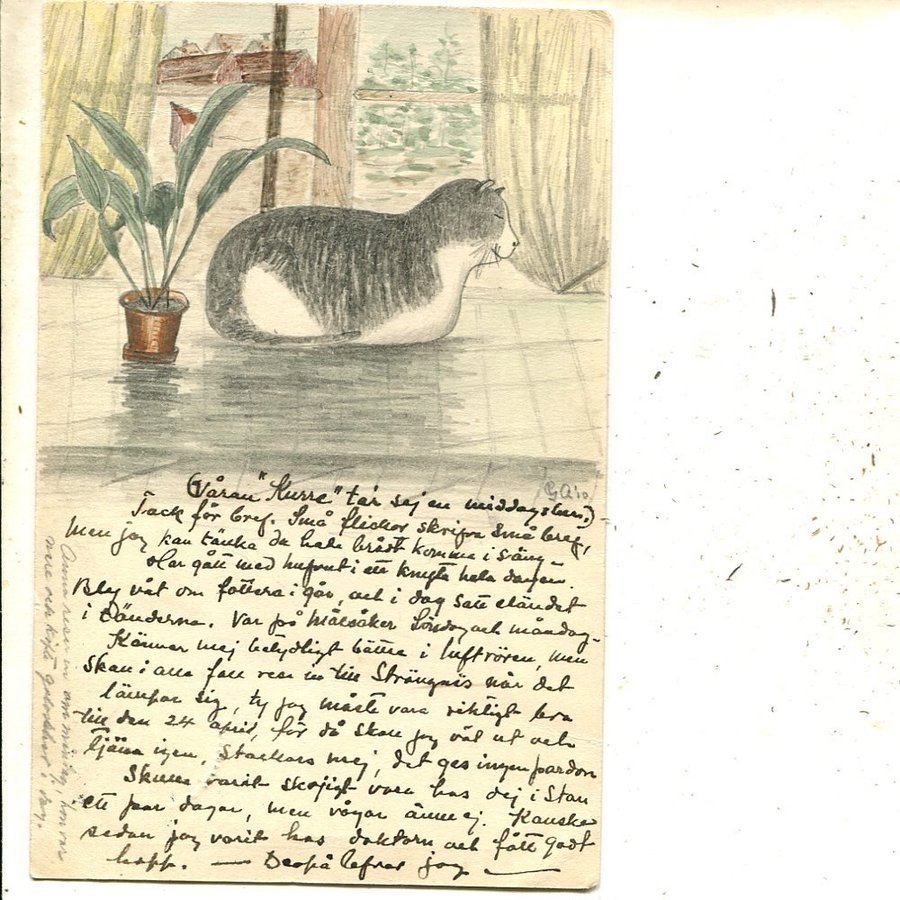 Våran "Kurre" tar sej en middagslur.)
GA 10
Tack för bref. Små flickor skrifva små bref,
men jag kan tänka du hade brådt komma i säng
Har gått med hufvut i ett knyte hela dagen.
Blef våt om fötterna i går, och i dag satt eländet
i tänderna. Var på Målsåker Söndag och måndag.
Känner mej betydligt bättre i luftrören, men
skall i alla fall resa in till Strängnäs når det
lämpar sig, ty jag måste vara riktigt bra
till den 24 april, för då skall jag väl ut och
tjäna igen, stackars mej, det ges ingen pardon
Skulle varit skojigt vara hos dej i Stan
ett par dagar, men vågar ännu ej. Kanske
sedan jag varit hos doktorn och fått godt
hopp. — Derpå lefver jag —
Anna reser in om måndag, hon var
nere och köpte i dag.